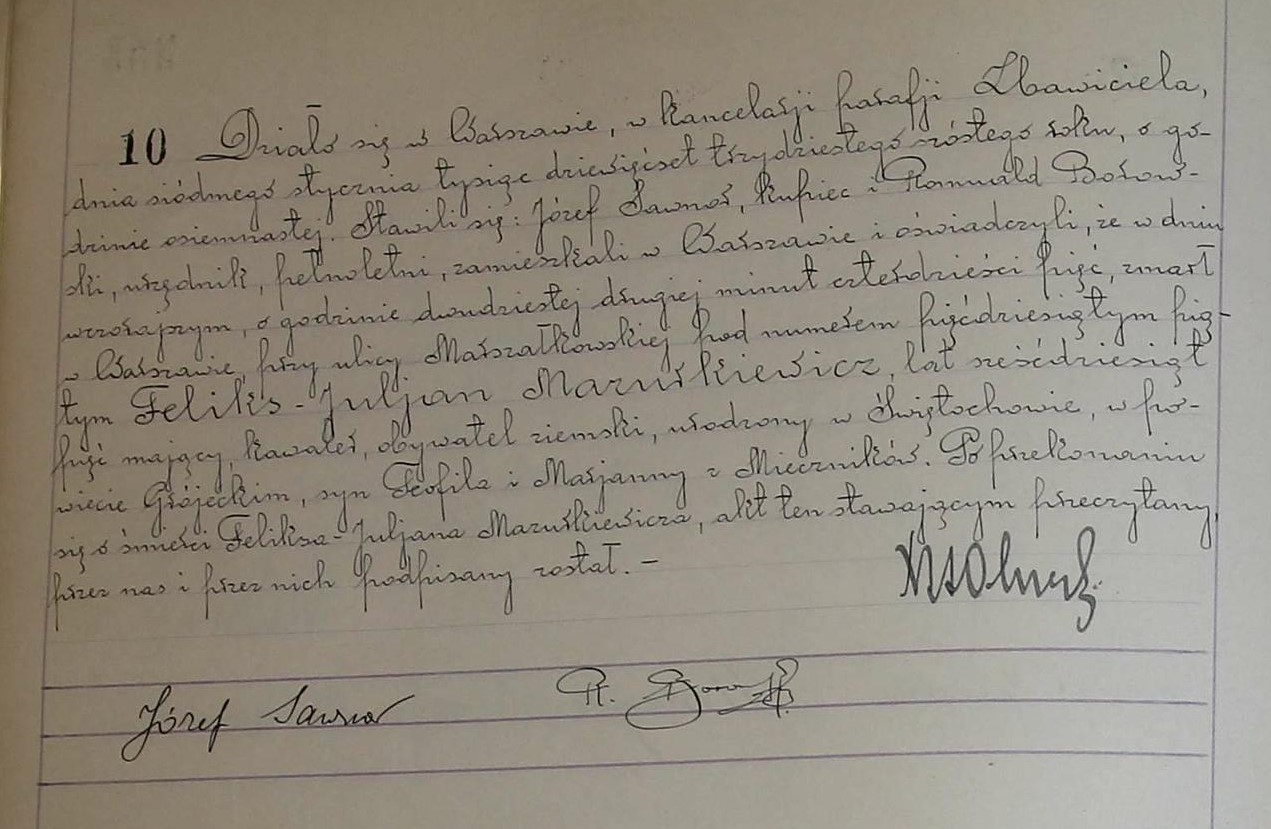 10 Działo się w Warszawie, w kancelarji parafji Zbawiciela,
dnia siódmego stycznia tysiąc dziewięćset trzydziestego szóstego roku, o go-
dzinie osiemnastej. Stawili się: Józef Sawnor, kupiec i Romuald Borow-
ski, urzędnik, pełnoletni, zamieszkali w Warszawie i oświadczyli, że w dniu
wczorajszym, o godzinie dwudziestej drugiej minut czterdzieści pięć, zmarł
w Warszawie, przy ulicy Marszałkowskiej pod numerem pięćdziesiątym pią-
tym Feliks-Juljan Mazurkiewicz, lat sześćdziesiąt
pięć mający, kawaler, obywatel ziemski, urodzony w Świętochowie, w po-
wiecie Grójeckim, syn Teofila i Marjanny z Mieczników. Po przekonaniu
się o śmierci Feliksa-Juljana Mazurkiewicza, akt ten stawającym przeczytany,
przez nas i przez nich podpisany został. -
Józef Sawnor R.